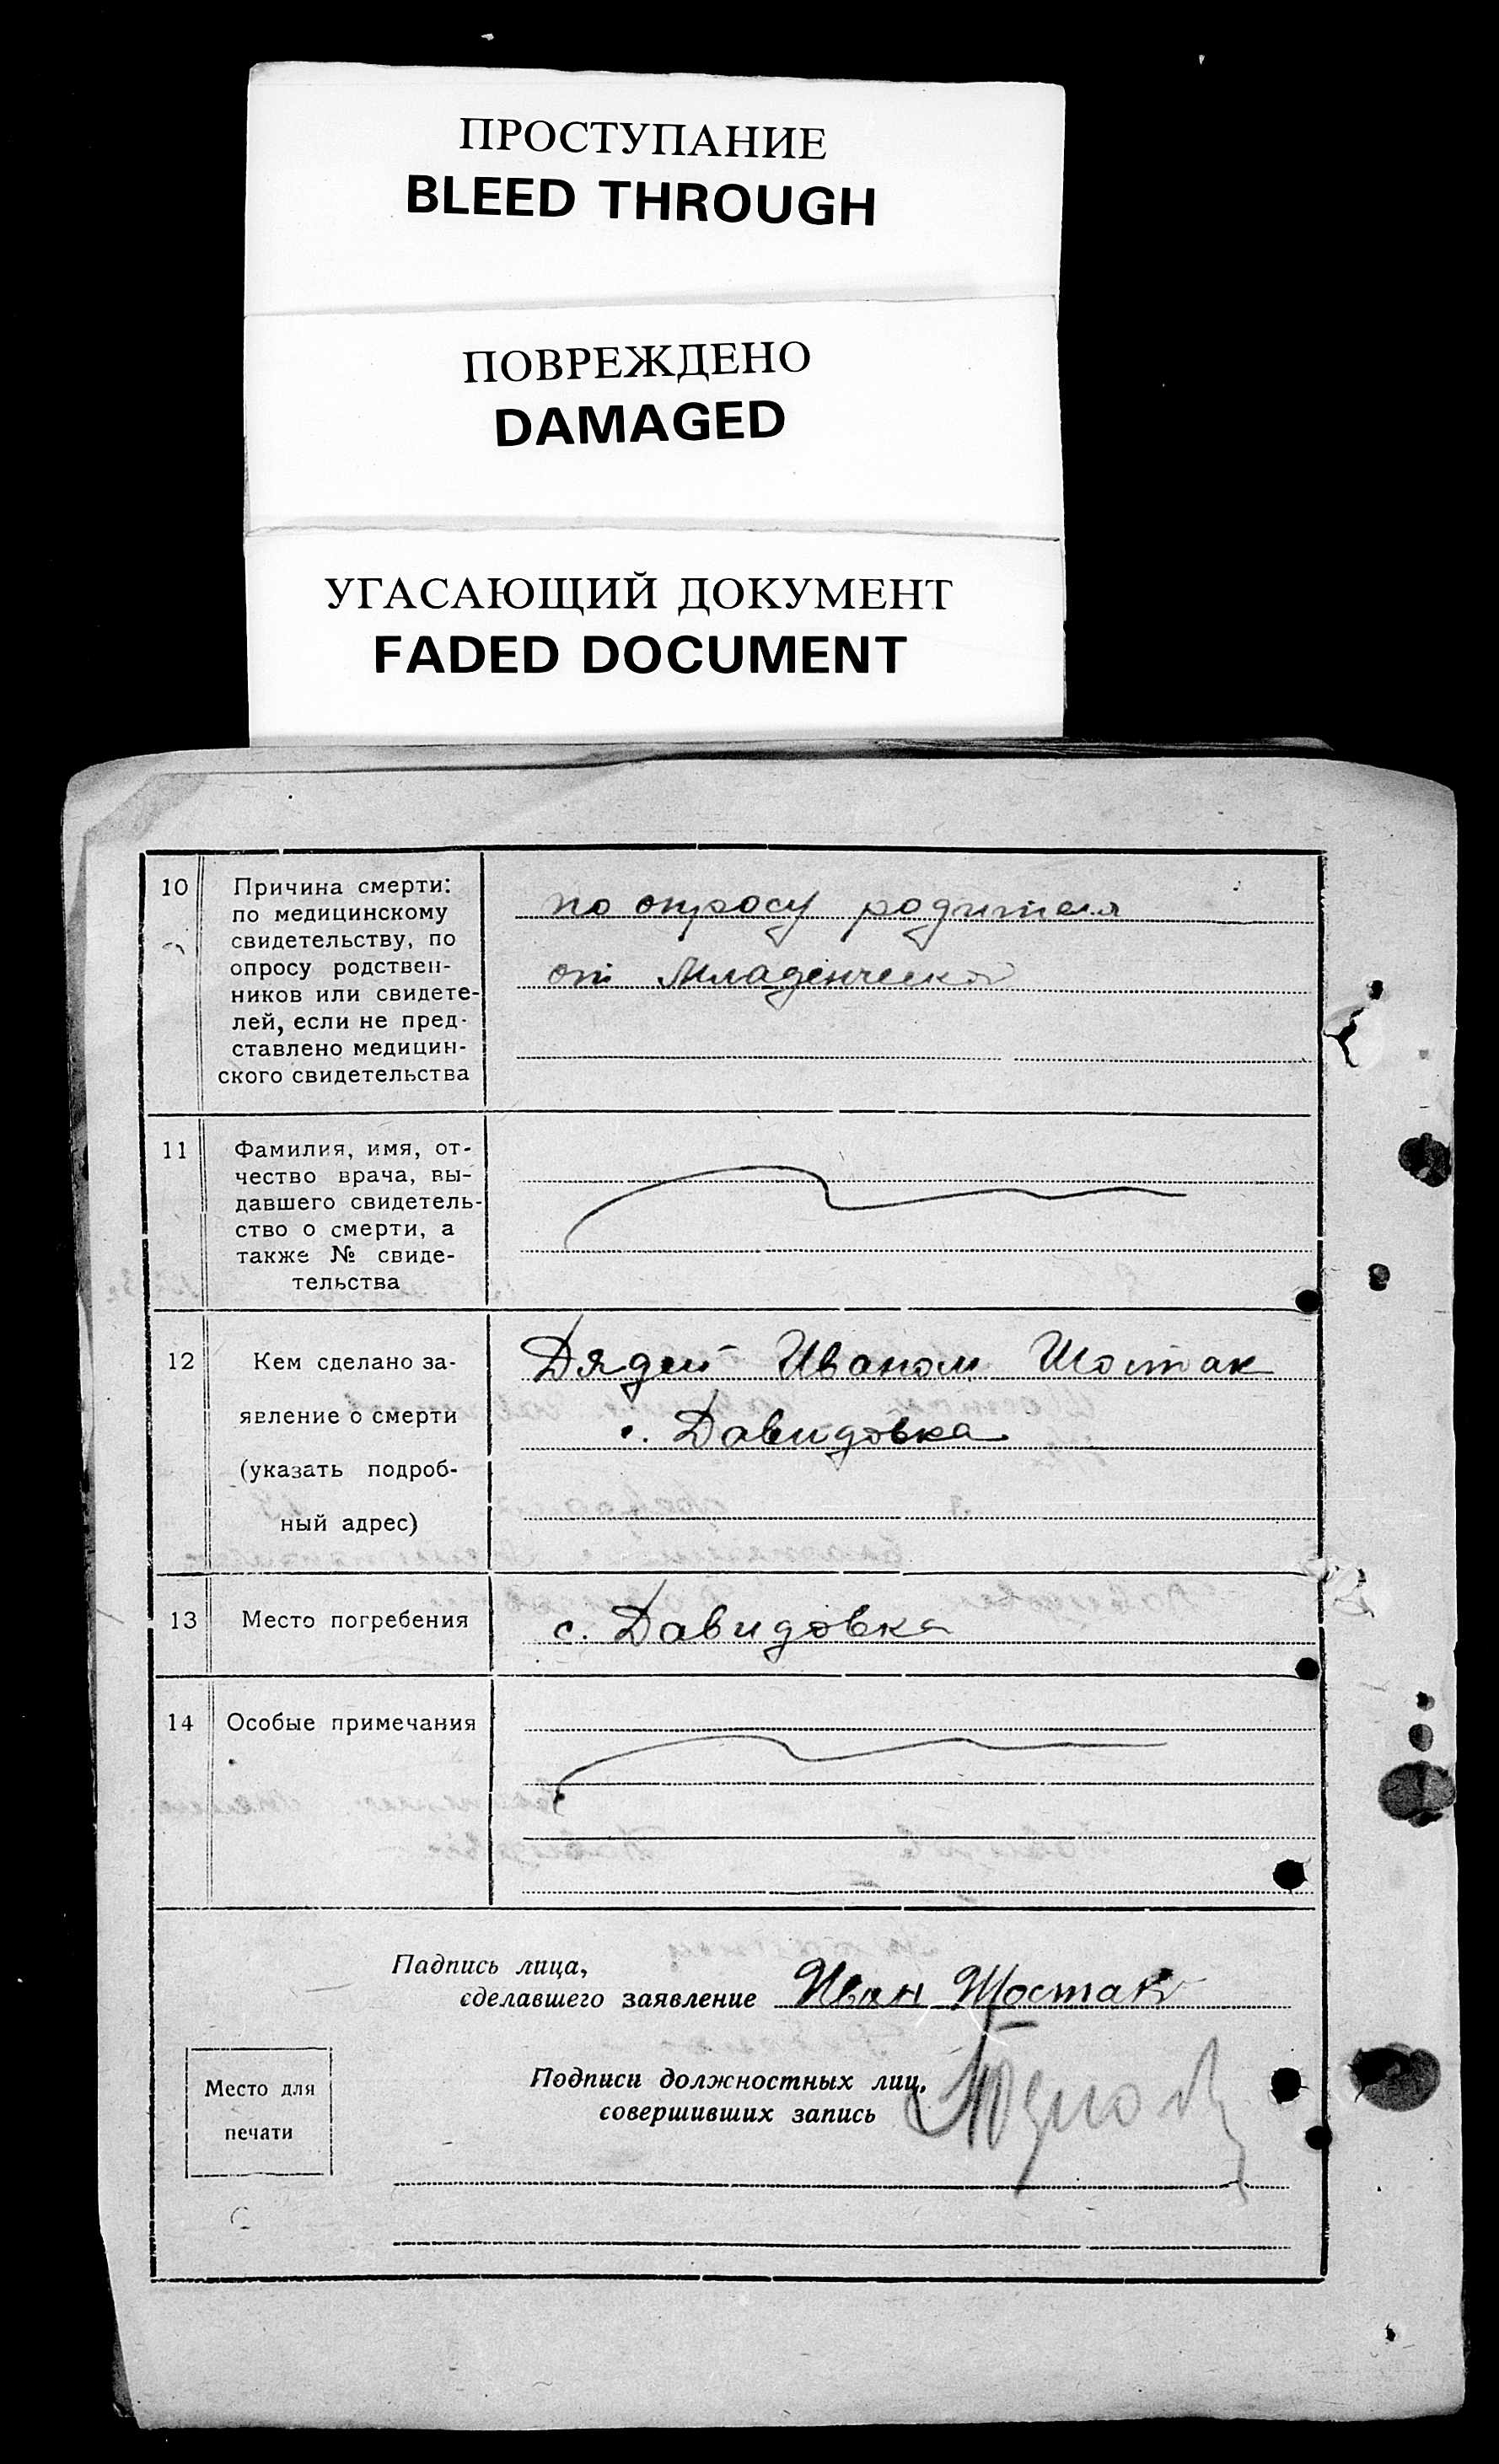 ПРОСТУПАНИЕ
BLEED THROUGH
ПОВРЕЖДЕНО
DAMAGED
УГАСАЮЩИЙ ДОКУМЕНТ
FADED DOCUMENT
10
Причина смерти:
по медицинскому
свидетельству, по
опросу родствен-
ников или свидете-
лей, если не пред-
ставлено медицин-
ского свидетельства
по опросу родителя
от Младенческой
11
Фамилия, имя, от-
чество врача, вы-
давшего свидетель-
ство о смерти, а
также № свиде-
тельства
12
Кем сделано за-
явление о смерти
(указать подроб-
ный адрес)
Дядей Иваном Шостак
с. Давидовка
13
Место погребения
с. Давидовка
14
Особые примечания
Падпись лица,
сделавшего заявление Иван Шостак
Подписи должностных лиц,
совершивших запись
Место для
печати